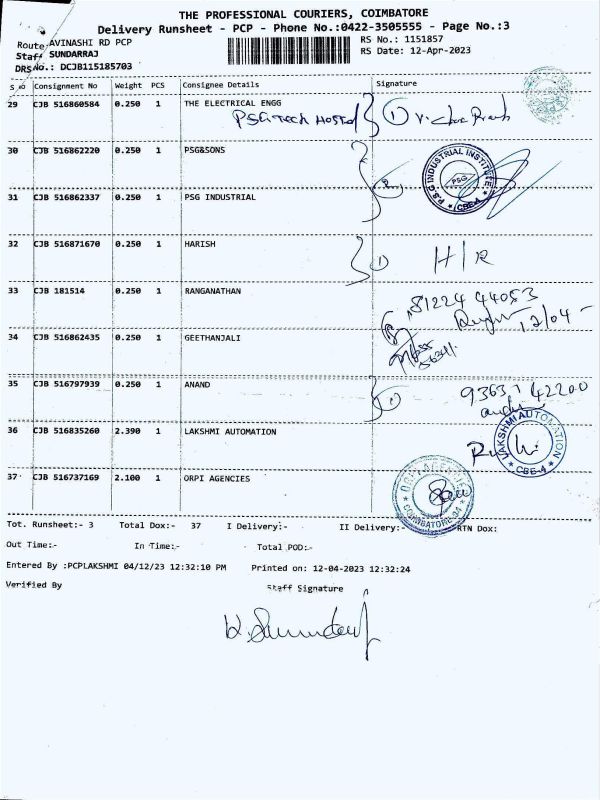 THE PROFESSIONAL COURIERS, COIMBATORE
Delivery Runsheet - PCP - Phone No.:0422-3505555 - Page No.:3
Route AVINASHI RD PCP
RS No.: 1151857
Staff SUNDARRAJ
RS Date: 12-Apr-2023
DRS No.: DCJB115185703
S no Consignment No Weight PCS Consignee Details Signature
29 CJB 516860584 0.250 1 THE ELECTRICAL ENGG
PSG iTech Hostel 1
30 CJB 516862220 0.250 1 PSG&SONS
P.S.G INDUSTRIAL INSTITUTE
PSG
CBE-4
2
31 CJB 516862337 0.250 1 PSG INDUSTRIAL
32 CJB 516871670 0.250 1 HARISH
1 H/R
33 CJB 181514 0.250 1 RANGANATHAN
81224 44053
12/04
34 CJB 516862435 0.250 1 GEETHANJALI
35 CJB 516797939 0.250 1 ANAND
1 93631 42200
36 CJB 516835260 2.390 1 LAKSHMI AUTOMATION
LAKSHMI AUTOMATION
CBE-4
37 CJB 516737169 2.100 1 ORPI AGENCIES
ORPI AGENCIES
COIMBATORE
Tot. Runsheet:- 3 Total Dox:- 37 I Delivery:- II Delivery:- RTN Dox:
Out Time:- In Time:- Total POD:-
Entered By :PCPLAKSHMI 04/12/23 12:32:10 PM Printed on: 12-04-2023 12:32:24
Verified By Staff Signature